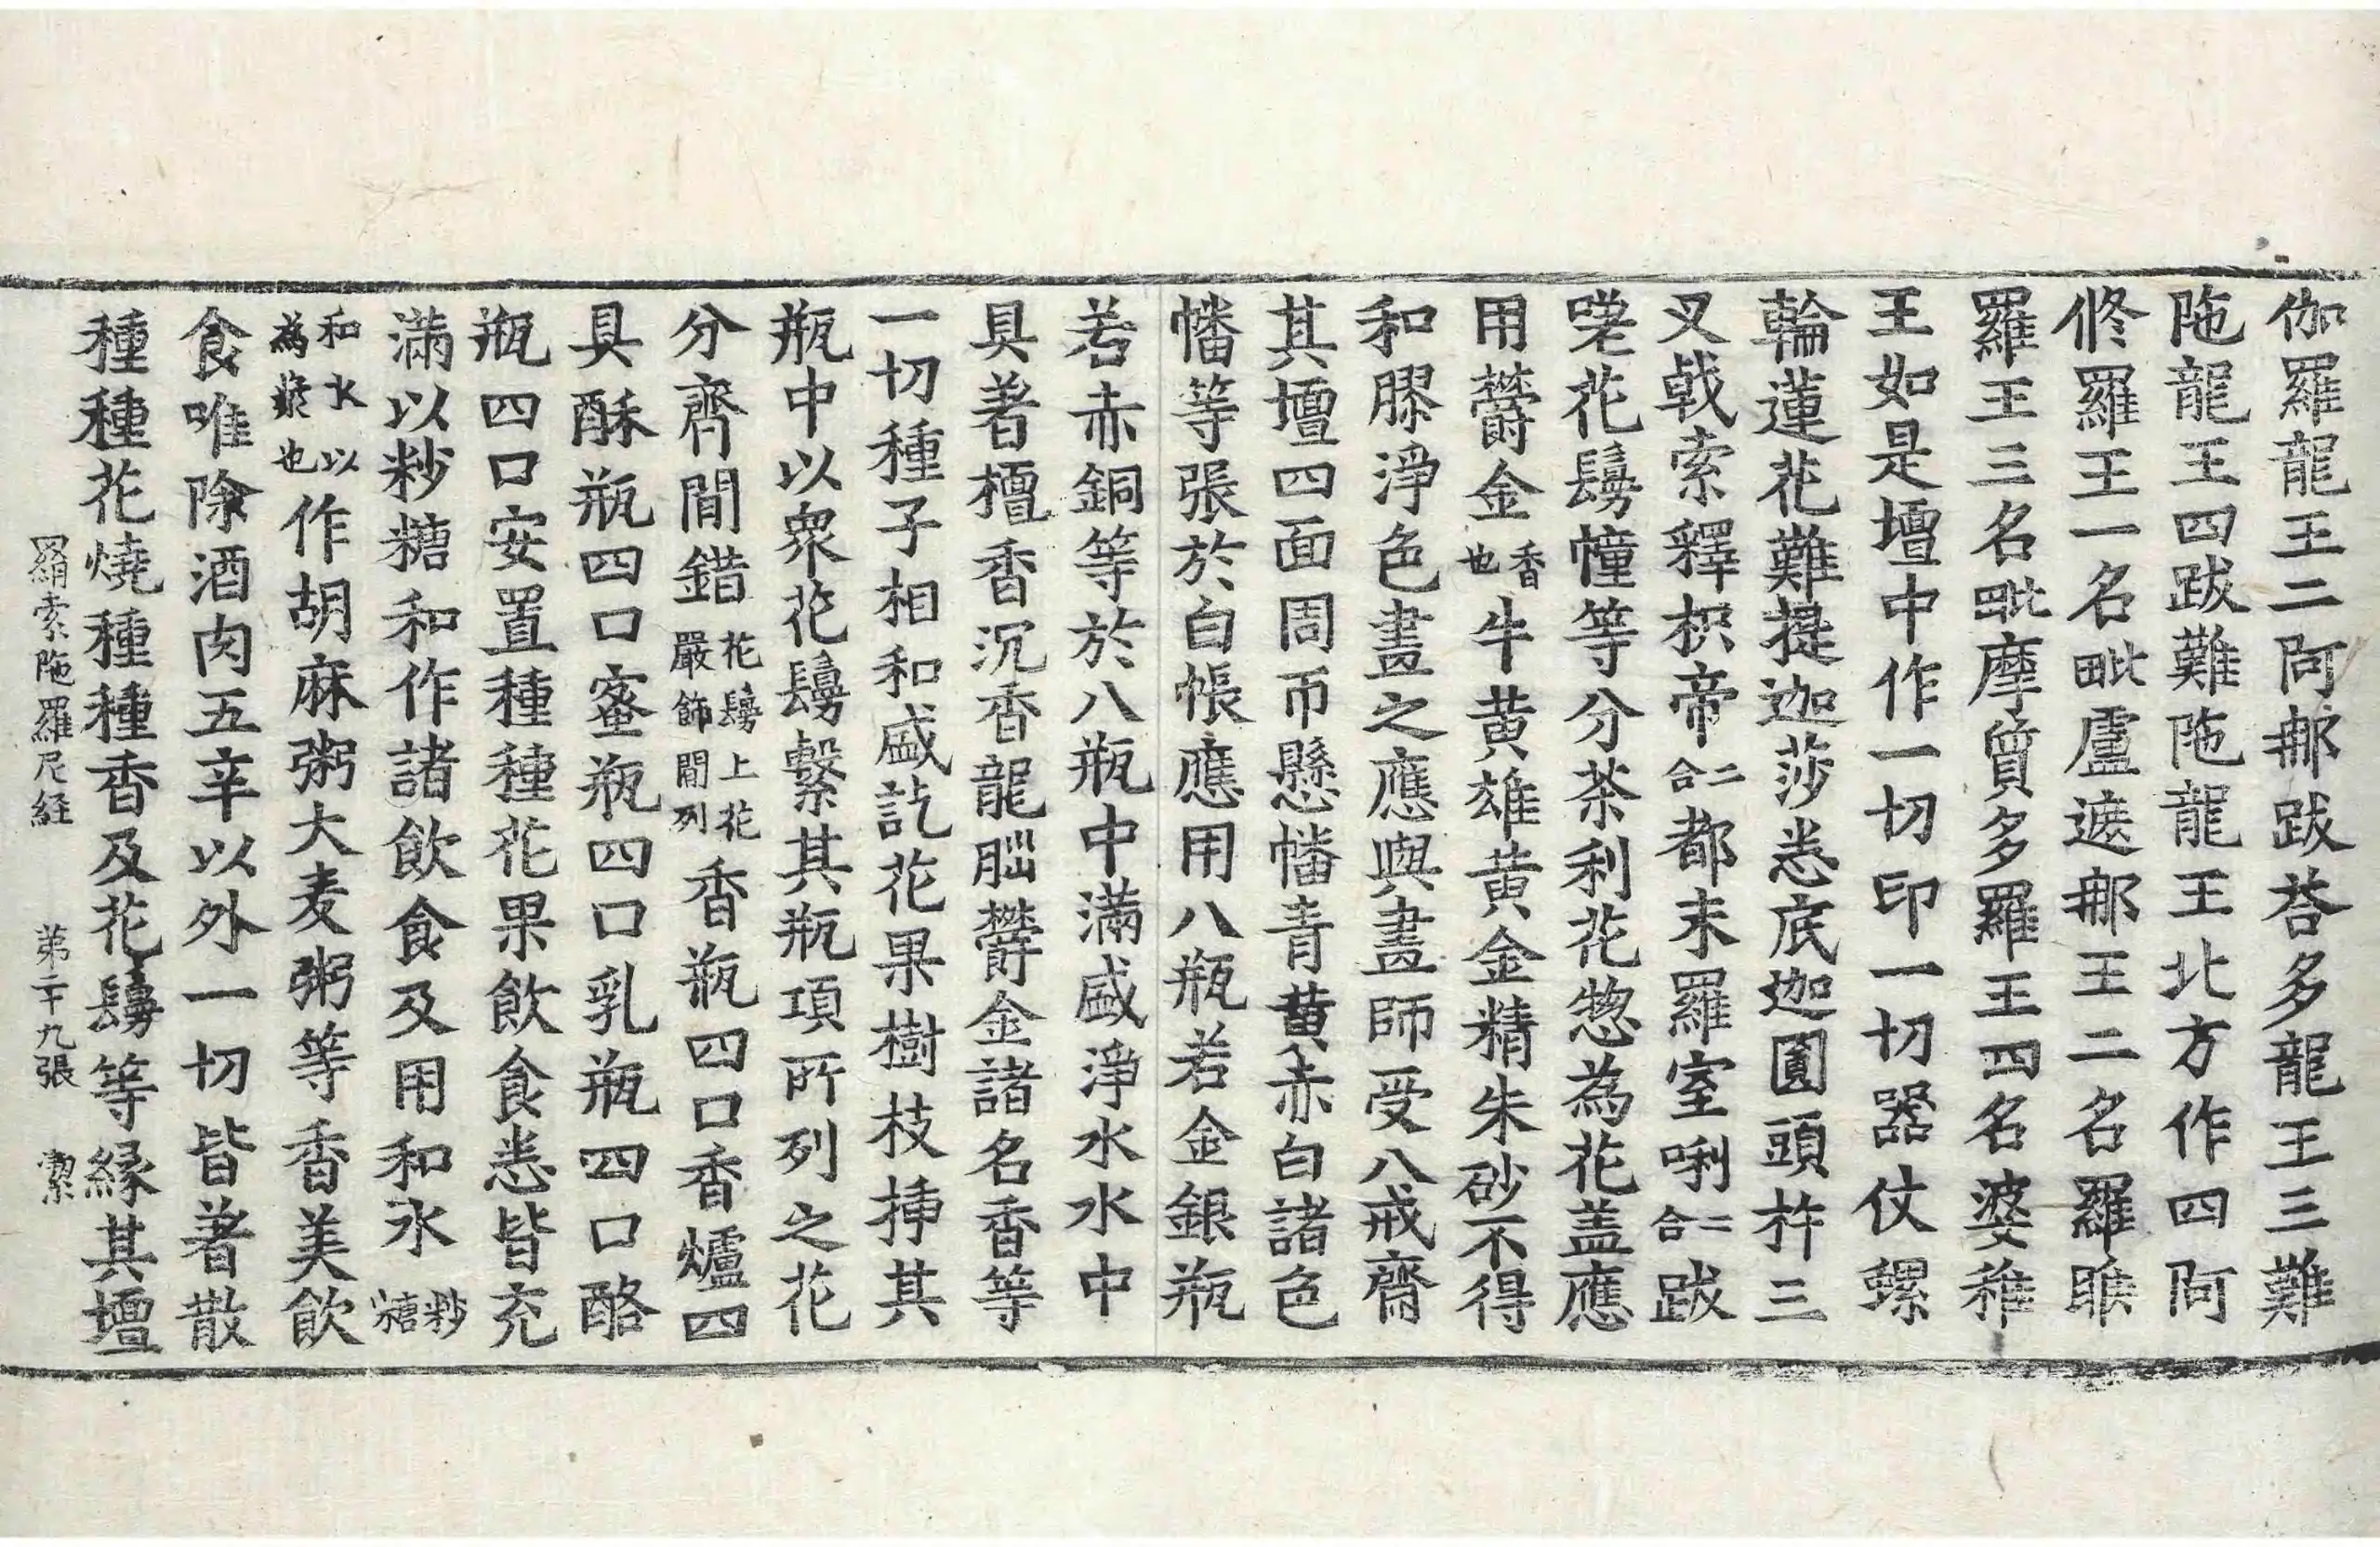 伽羅龍王二阿那跋荅多龍王三難
陁龍王四跋難陁龍王北方作四阿
修羅王一名毗盧遮那王二名羅睺
羅王三名毗摩質多羅王四名婆稚
王如是壇中作一切印一切器仗螺
輪蓮花難提迦莎悉底迦圓頭杵三
叉戟索釋枳帝二合都末羅室唎二合跋
嗟花鬘幢等分荼利花惣為花盖應
用欝金香也牛黄雄黄金精朱砂不得
和膠淨色畫之應與畫師受八戒齋
其壇四面周帀懸幡青黄赤白諸色
幡等張於白帳應用八瓶若金銀瓶
若赤銅等於八瓶中滿盛淨水水中
具著檀香沉香龍腦欝金諸名香等
一切種子相和盛訖花果樹枝挿其
瓶中以衆花鬘繫其瓶項所列之花
分齊間錯花鬘上花嚴飾間列香瓶四口香爐四
具酥瓶四口蜜瓶四口乳瓶四口酪
瓶四口安置種種花果飲食悉皆充
滿以粆糖和作諸飲食及用和水粆糖
和水以為漿也作胡麻粥大麦粥等香美飲
食唯除酒肉五辛以外一切皆著散
種種花燒種種香及花鬘等緣其壇
羂索陁羅尼経 苐二十九張 潔